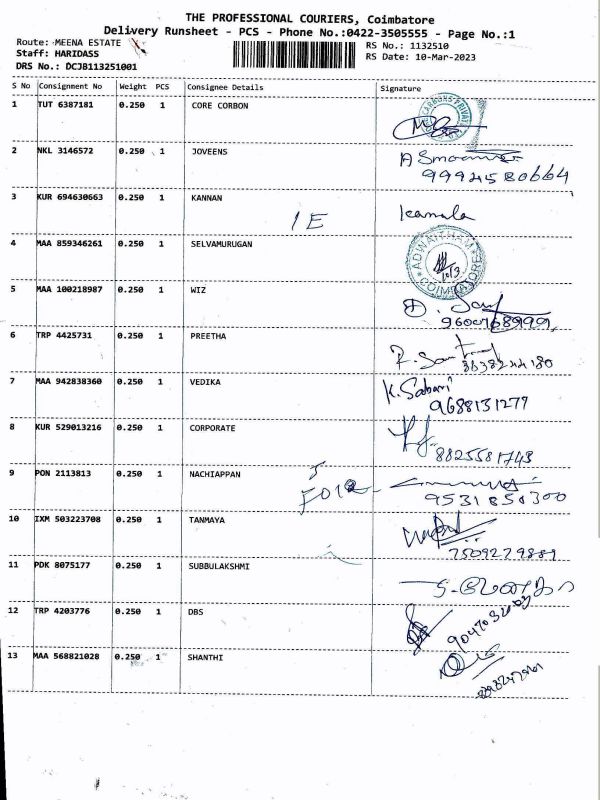 THE PROFESSIONAL COURIERS, Coimbatore
Delivery Runsheet - PCS - Phone No.:0422-3505555 - Page No.:1
Route: MEENA ESTATE
Staff: HARIDASS
DRS No.: DCJB113251001
RS No.: 1132510
RS Date: 10-Mar-2023
S No Consignment No Weight PCS Consignee Details Signature
1 TUT 6387181 0.250 1 CORE CORBON
2 NKL 3146572 0.250 1 JOVEENS
9994580664
3 KUR 694630663 0.250 1 KANNAN Kamala
1E
4 MAA 859346261 0.250 1 SELVAMURUGAN
ADWAITHAM COIMBATORE
5 MAA 100218987 0.250 1 WIZ
6 TRP 4425731 0.250 1 PREETHA
7 MAA 942838360 0.250 1 VEDIKA K. Sabari
9688131277
8 KUR 529013216 0.250 1 CORPORATE
8825581743
9 PON 2113813 0.250 1 NACHIAPPAN
9531850300
10 IXM 503223708 0.250 1 TANMAYA
7509279889
11 PDK 8075177 0.250 1 SUBBULAKSHMI
12 TRP 4203776 0.250 1 DBS
13 MAA 568821028 0.250 1 SHANTHI